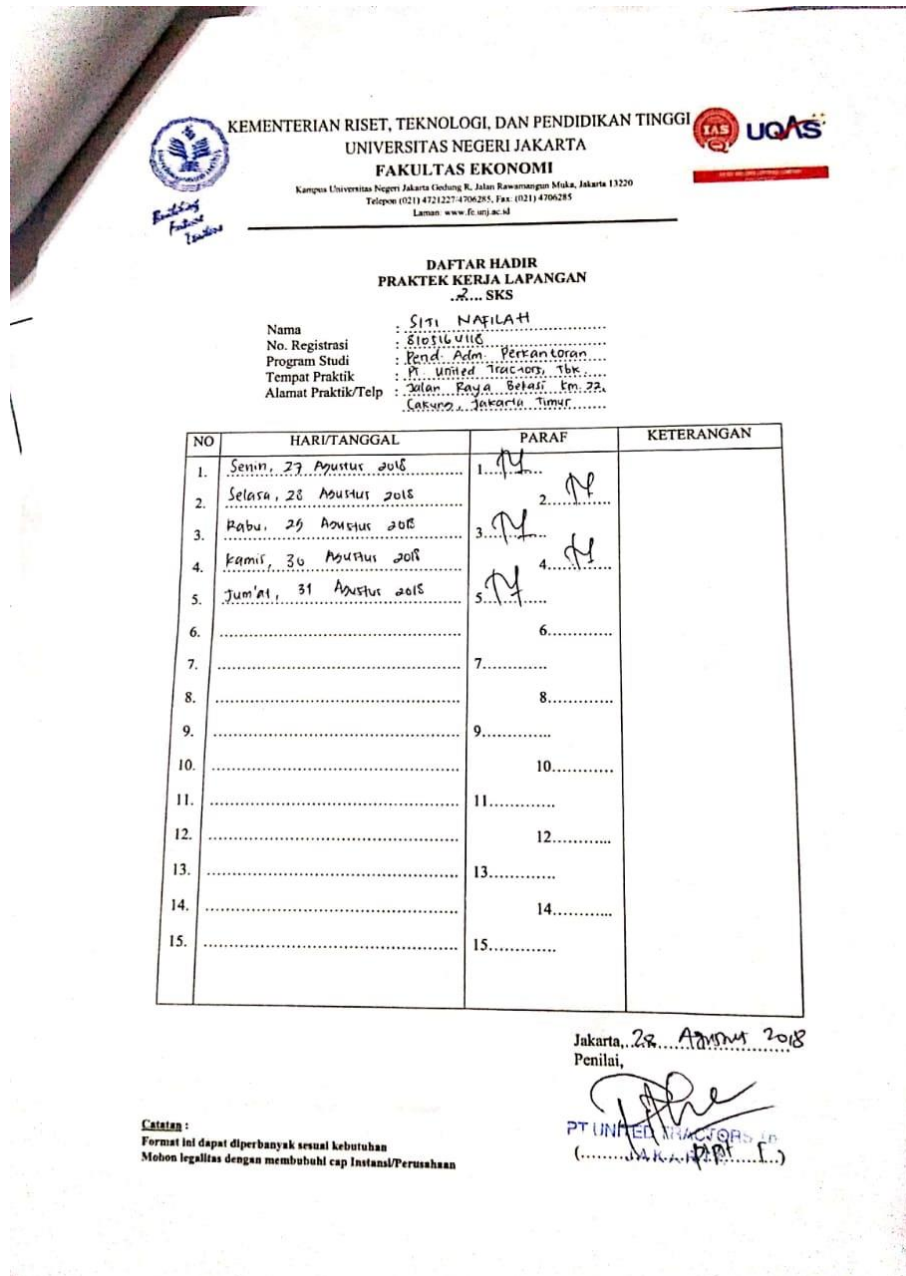 KEMENTERIAN RISET, TEKNOLOGI, DAN PENDIDIKAN TINGGI
UNIVERSITAS NEGERI JAKARTA
FAKULTAS EKONOMI
Kampus Universitas Negeri Jakarta Gedung R, Jalan Rawamangun Muka, Jakarta 13220
Telepon (021) 4721227/4706285, Fax: (021) 4706285
Laman: www.fe.unj.ac.id
Building
Future
Leaders
IAS
UQAS
DAFTAR HADIR
PRAKTEK KERJA LAPANGAN
.2.... SKS
Nama : SITI NAFILAH
No. Registrasi : 8105164118
Program Studi : Pend. Adm. Perkantoran
Tempat Praktik : PT. United Tractors, Tbk.
Alamat Praktik/Telp : Jalan Raya Bekasi Km. 22,
Cakung, Jakarta Timur
NO HARI/TANGGAL PARAF KETERANGAN
1. Senin, 27 Agustus 2018 1.
2. Selasa, 28 Agustus 2018 2.
3. Rabu, 29 Agustus 2018 3.
4. Kamis, 30 Agustus 2018 4.
5. Jum'at, 31 Agustus 2018 5.
6. 6.
7. 7.
8. 8.
9. 9.
10. 10.
11. 11.
12. 12.
13. 13.
14. 14.
15. 15.
Jakarta, 28 Agustus 2018
Penilai,
PT UNITED TRACTORS
JAKARTA
Catatan :
Format ini dapat diperbanyak sesuai kebutuhan
Mohon legalitas dengan membubuhi cap Instansi/Perusahaan